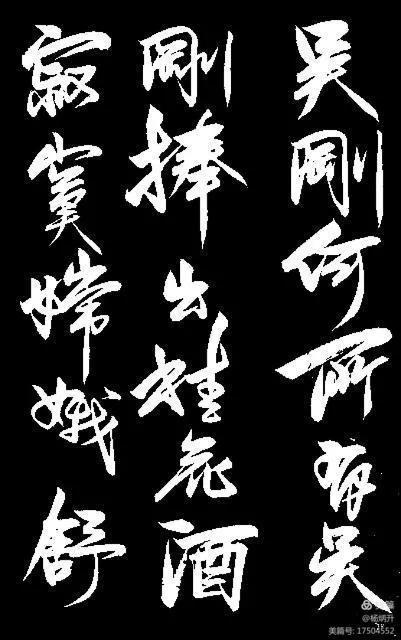 吴剛何所有吴
剛捧出桂花酒
寂寞嫦娥舒
@杨炳升
美篇号: 17504552